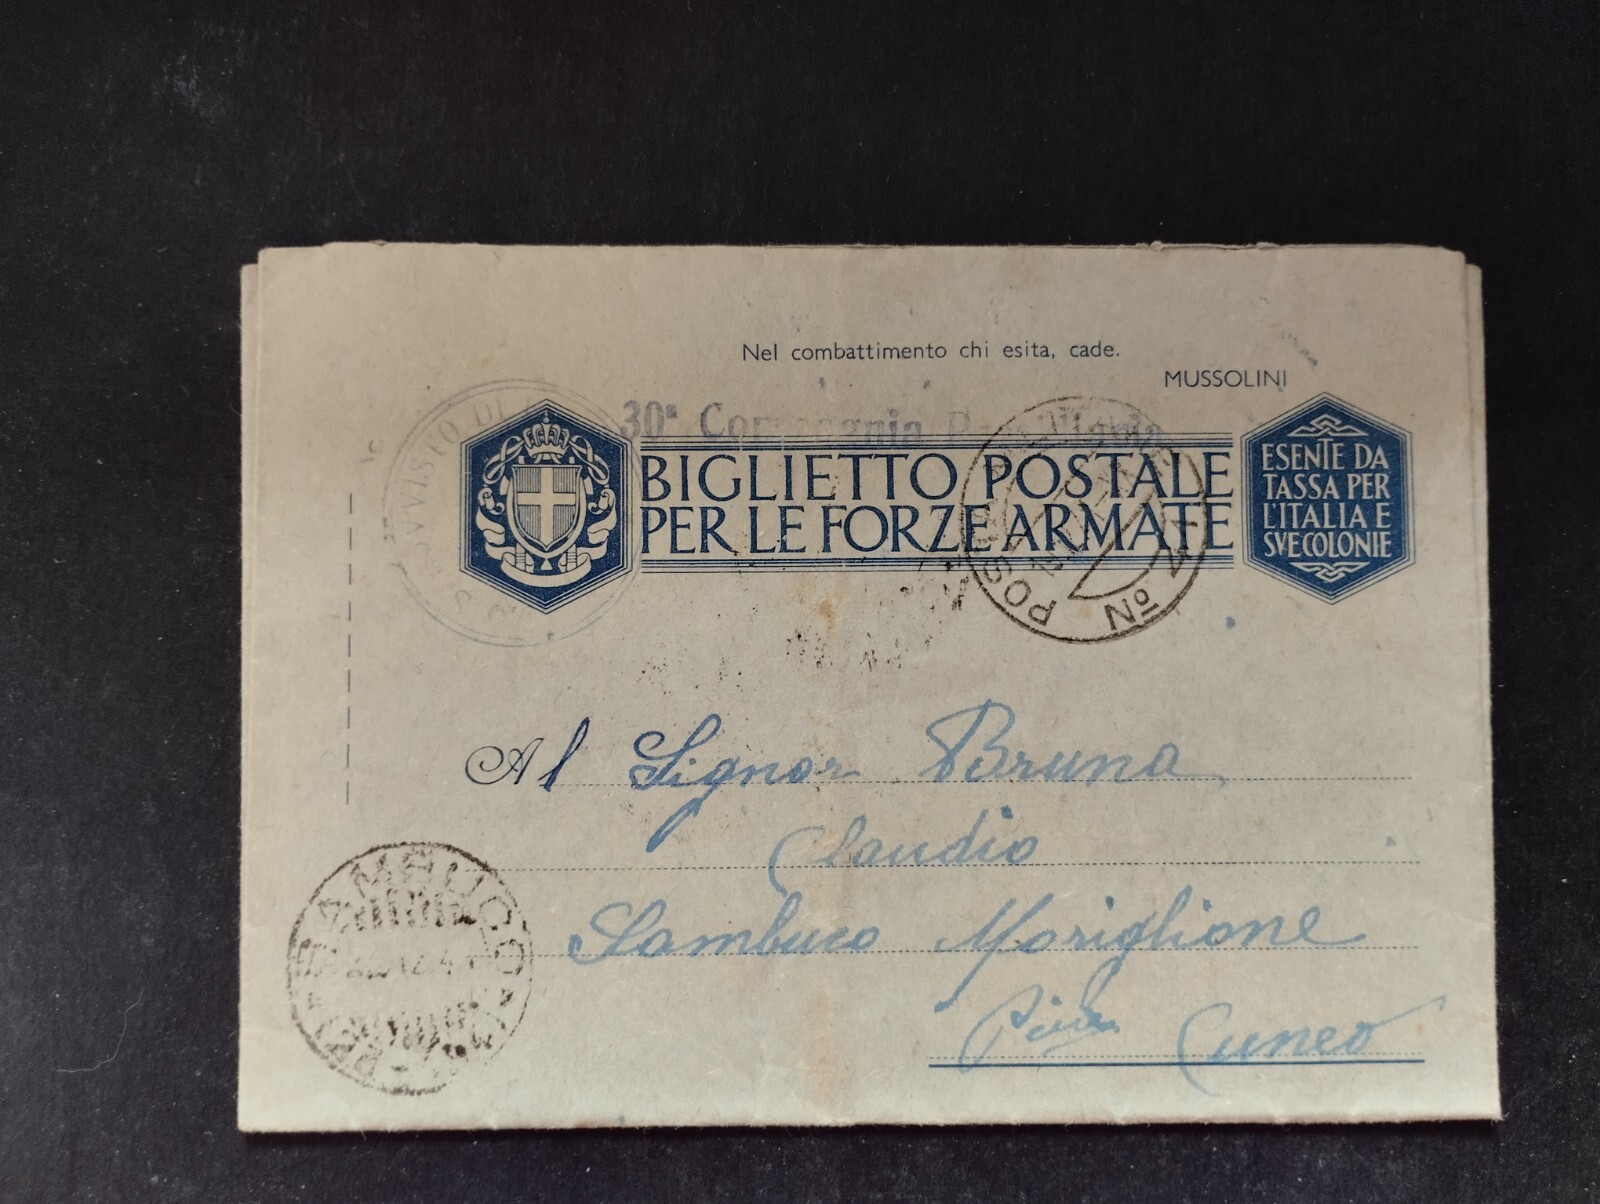 Nel combattimento chi esita, cade.
MUSSOLINI
30ª Compagnia
BIGLIETTO POSTALE
PER LE FORZE ARMATE
ESENTE DA
TASSA PER
L'ITALIA E
SVE COLONIE
VISTO DI
POSTA
No
Al Signor Bruna
Claudio
Sambuco Moriglione
Cuneo
SAMBUCO